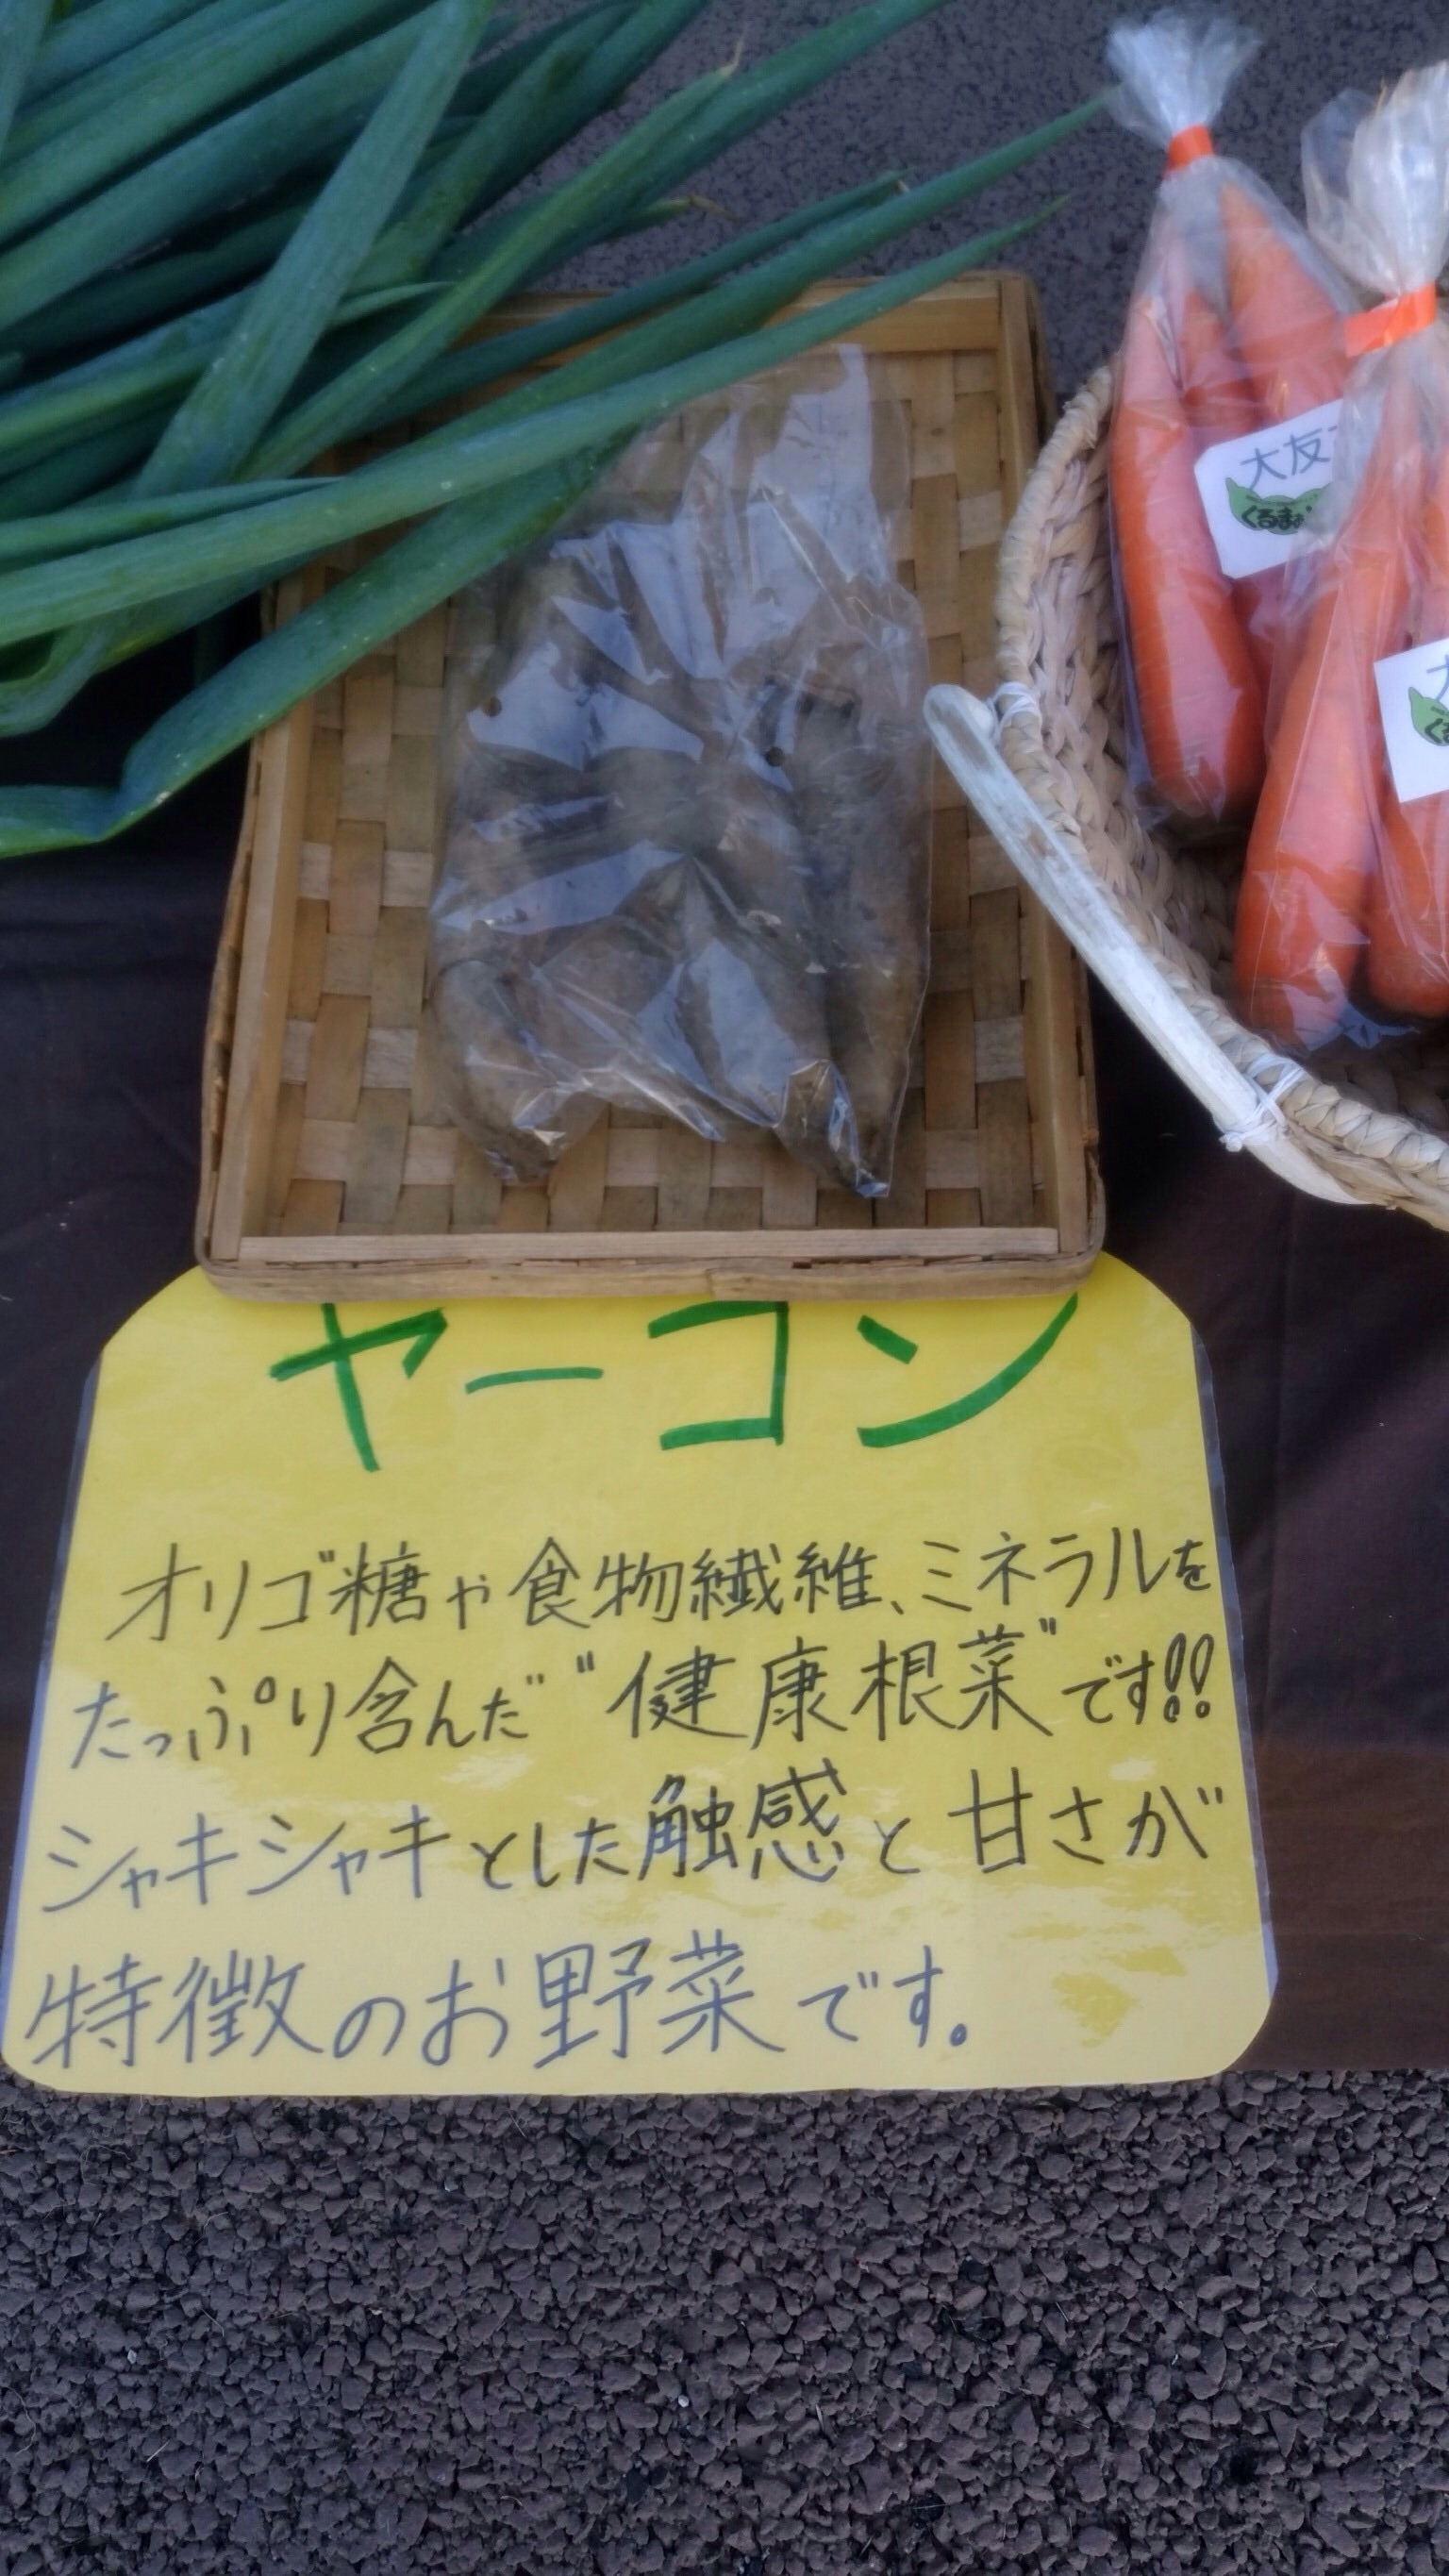 大友
くるまぁ
ヤーコン
オリゴ糖や食物繊維、ミネラルを
たっぷり含んだ"健康根菜"です!!
シャキシャキとした触感と甘さが
特徴のお野菜です。